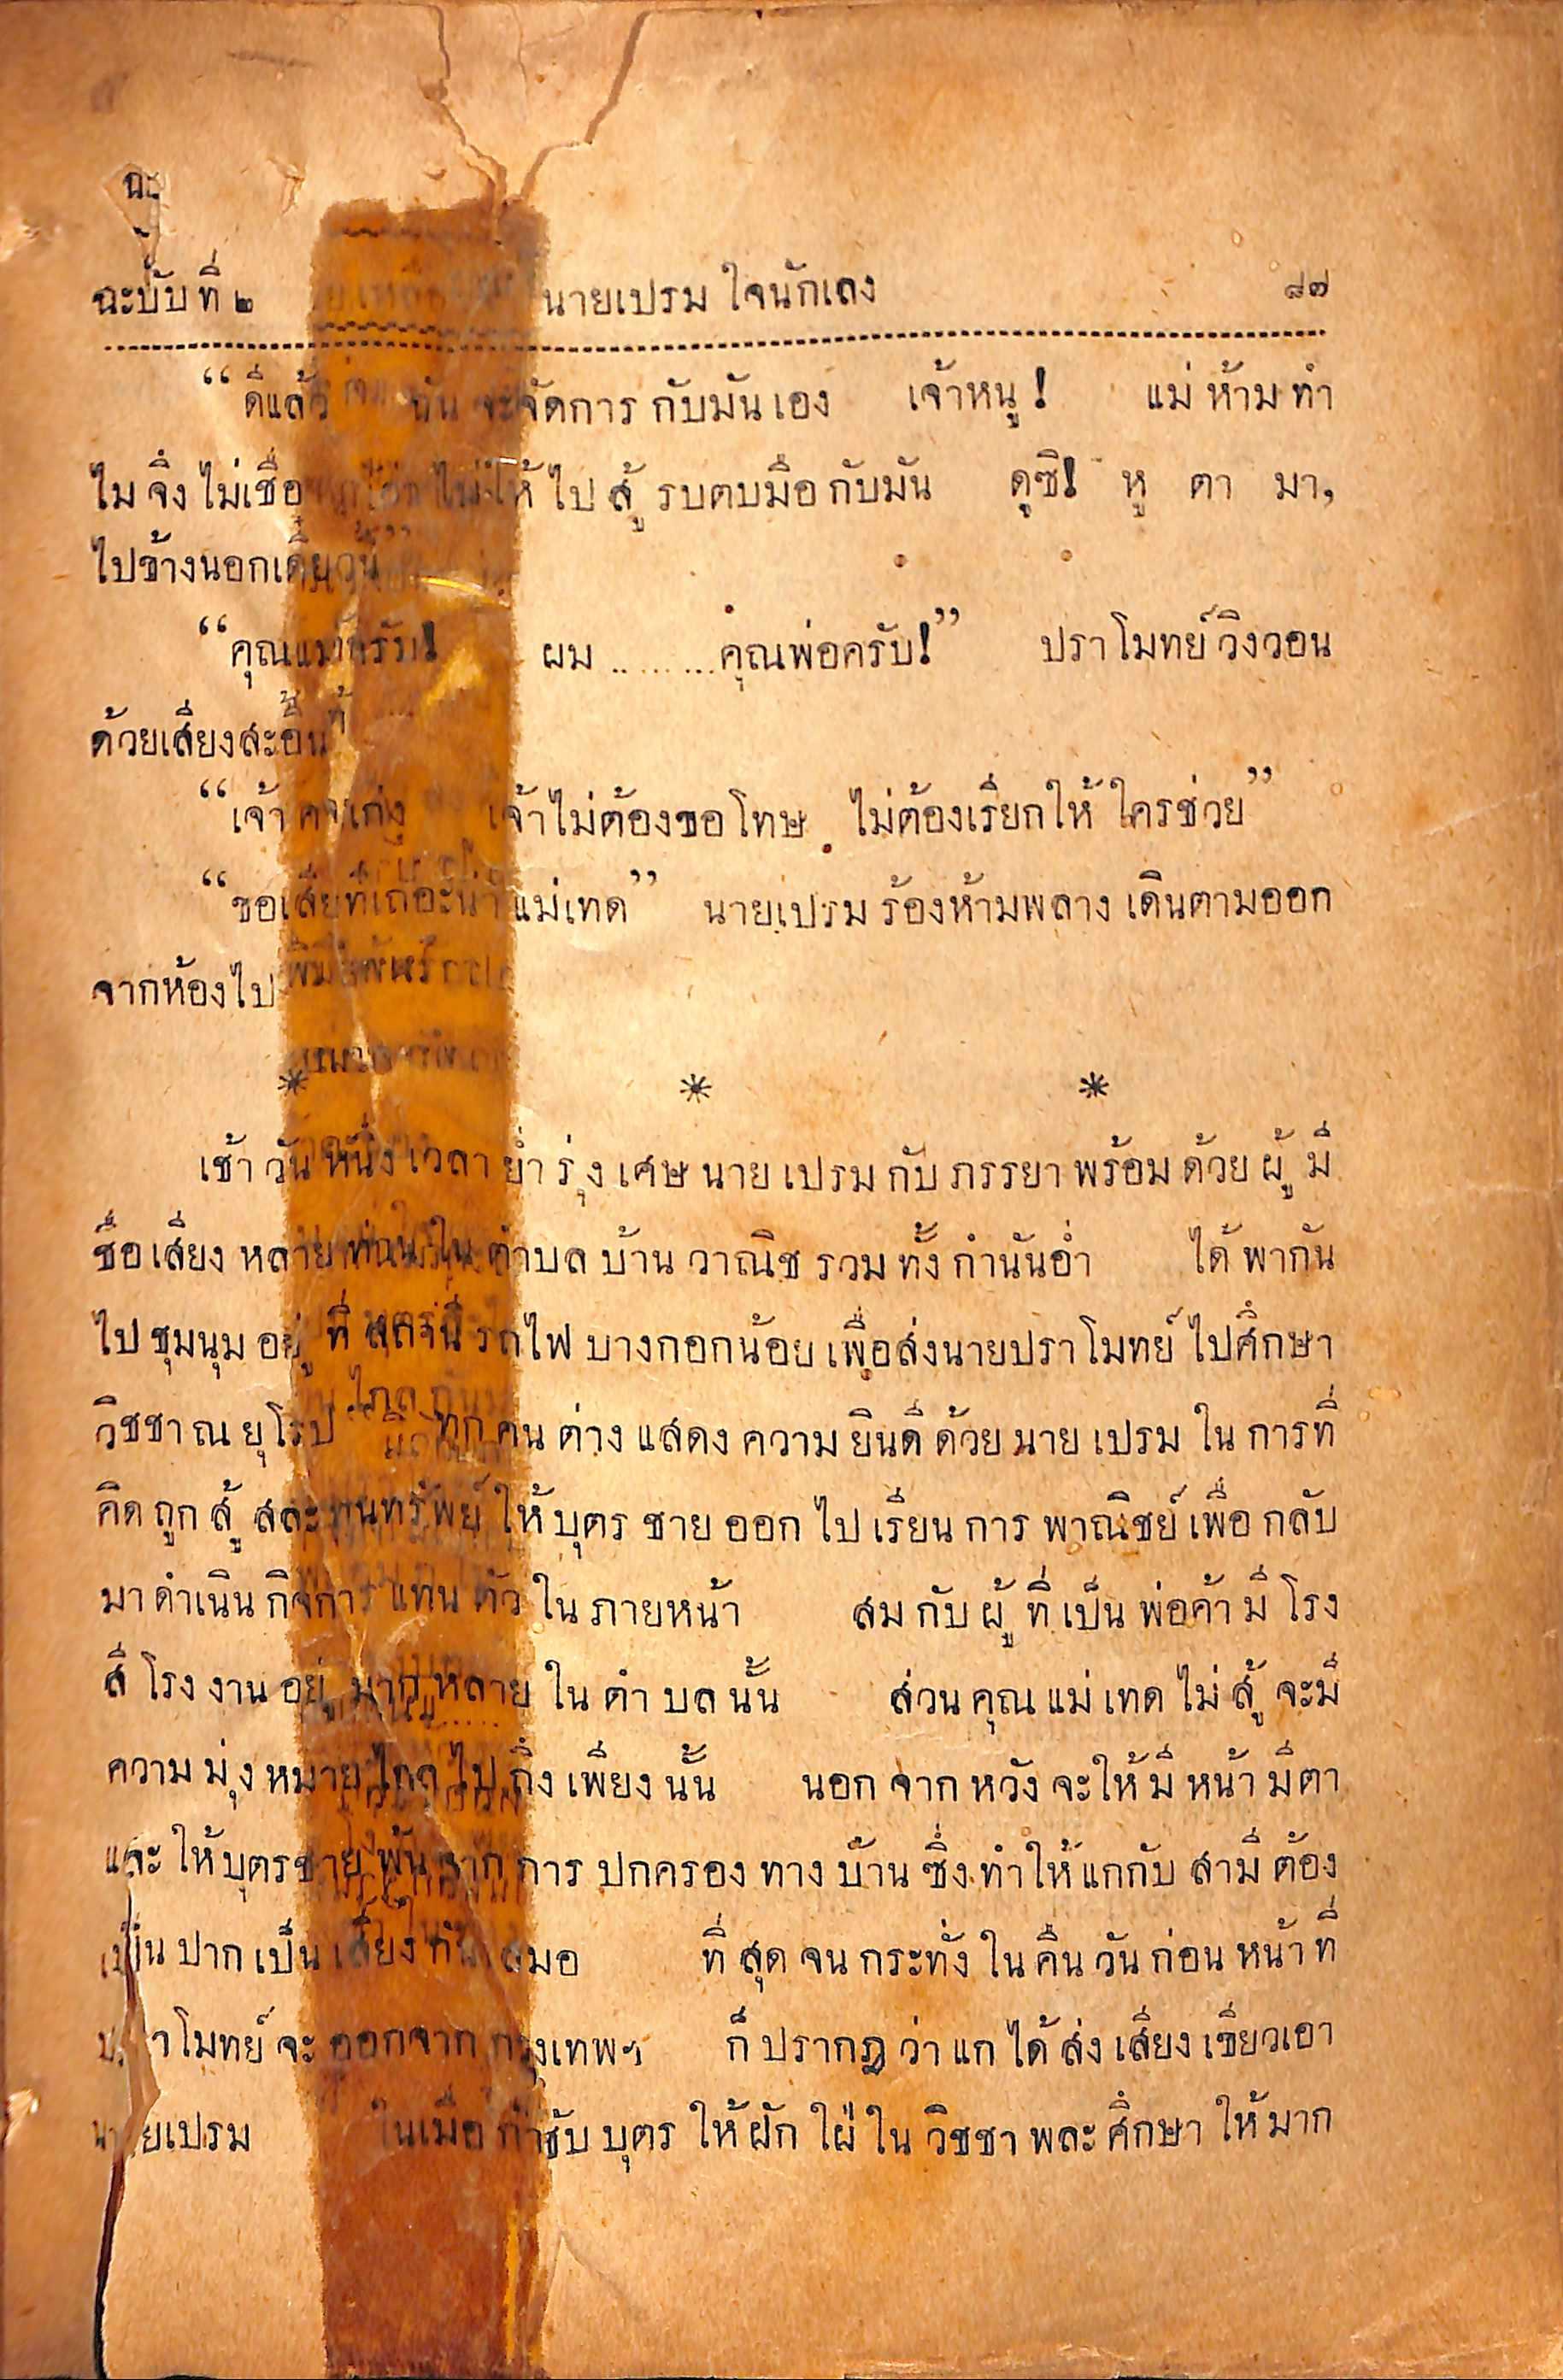 ฉะ
ฉะบับที่ ๒ นายเปรม ใจนักเลง ๘๗
“ดีแล้ว ฉัน จะจัดการ กับมัน เอง เจ้าหนู ! แม่ ห้าม ทำ
ไม จึง ไม่เชื่อ ไม่ให้ ไป สู้ รบตบมือ กับมัน ดูซิ! หู ตา มา,
ไปข้างนอกเดี๋ยวนี้”
“คุณแม่ครับ! ผม .........คุณพ่อครับ!” ปราโมทย์ วิงวอน
ด้วยเสียงสะอื้น
“เจ้า คนเก่ง เจ้าไม่ต้องขอ โทษ ไม่ต้องเรียกให้ ใครช่วย”
“ขอเสียทีเถอะน่า แม่เทด” นายเปรม ร้องห้ามพลาง เดินตามออก
จากห้องไป
* * *
เช้า วัน หนึ่ง เวลา ย่ำ รุ่ง เศษ นาย เปรม กับ ภรรยา พร้อม ด้วย ผู้ มี
ชื่อ เสียง หลาย ท่าน ใน ตำบล บ้าน วาณิช รวม ทั้ง กำนันอ่ำ ได้ พากัน
ไป ชุมนุม อยู่ ที่ สถานี รถไฟ บางกอกน้อย เพื่อส่งนายปราโมทย์ ไปศึกษา
วิชชา ณ ยุโรป ทุก คน ต่าง แสดง ความ ยินดี ด้วย นาย เปรม ใน การที่
คิด ถูก สู้ สละ ทุนทรัพย์ ให้ บุตร ชาย ออก ไป เรียน การ พาณิชย์ เพื่อ กลับ
มา ดำเนิน กิจการ แทน ตัว ใน ภายหน้า สม กับ ผู้ ที่ เป็น พ่อค้า มี โรง
สี โรง งาน อยู่ มาก หลาย ใน ตำ บล นั้น ส่วน คุณ แม่ เทด ไม่ สู้ จะมี
ความ มุ่ง หมาย ไกล ไป ถึง เพียง นั้น นอก จาก หวัง จะให้ มี หน้า มีตา
และ ให้ บุตรชาย พ้น จาก การ ปกครอง ทาง บ้าน ซึ่ง ทำให้ แกกับ สามี ต้อง
เป็น ปาก เป็น เสียง กัน เสมอ ที่ สุด จน กระทั่ง ใน คืน วัน ก่อน หน้า ที่
ปราโมทย์ จะ ออกจาก กรุงเทพฯ ก็ ปรากฏ ว่า แก ได้ ส่ง เสียง เขียวเอา
นายเปรม ในเมื่อ กำชับ บุตร ให้ ฝัก ใฝ่ ใน วิชชา พละ ศึกษา ให้ มาก